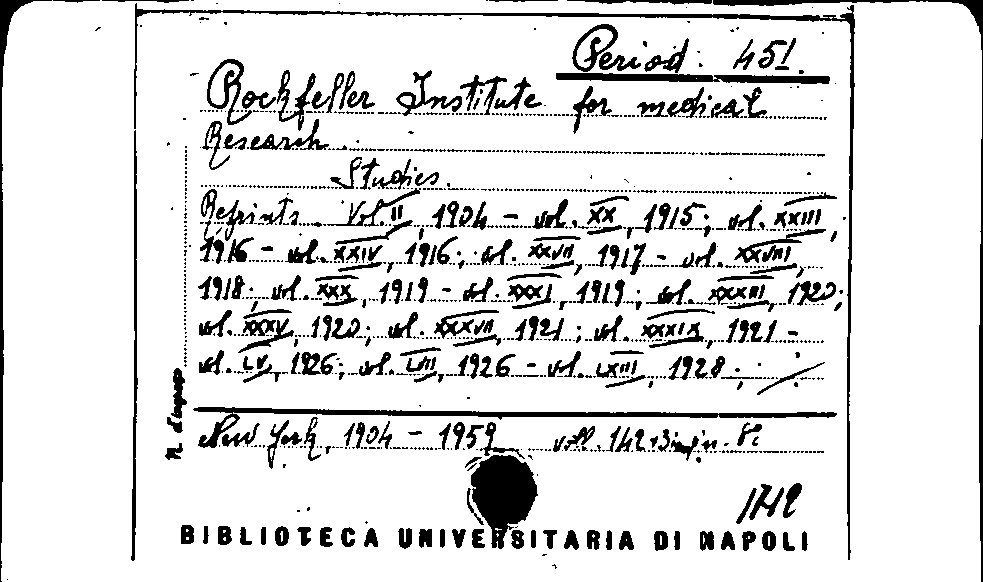 Period. 451.
Rockfeller Institute for medical
Research.
Studies.
Reprints. Vol. II, 1904 - vol. XX, 1915; vol. XXIII,
1916 - vol. XXIV, 1916; vol. XXVII, 1917 - vol. XXVIII,
1918; vol. XXX, 1919 - vol. XXXI, 1919; vol. XXXIII, 1920;
vol. XXXV, 1920; vol. XXXVII, 1921; vol. XXXIX, 1921 -
vol. LV, 1926; vol. LVII, 1926 - vol. LXIII, 1928;
N. d'ingresso
New York, 1904 - 1959 voll. 142+3 in 8º
1712
BIBLIOTECA UNIVERSITARIA DI NAPOLI